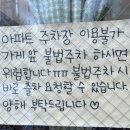 아파트 주차장 이용불가
가게 앞 불법주차 하시면
위험합니다ㅠㅠ 불법주차 시
바로 출차 요청할 수 없습니다.
양해 부탁드립니다 ♡